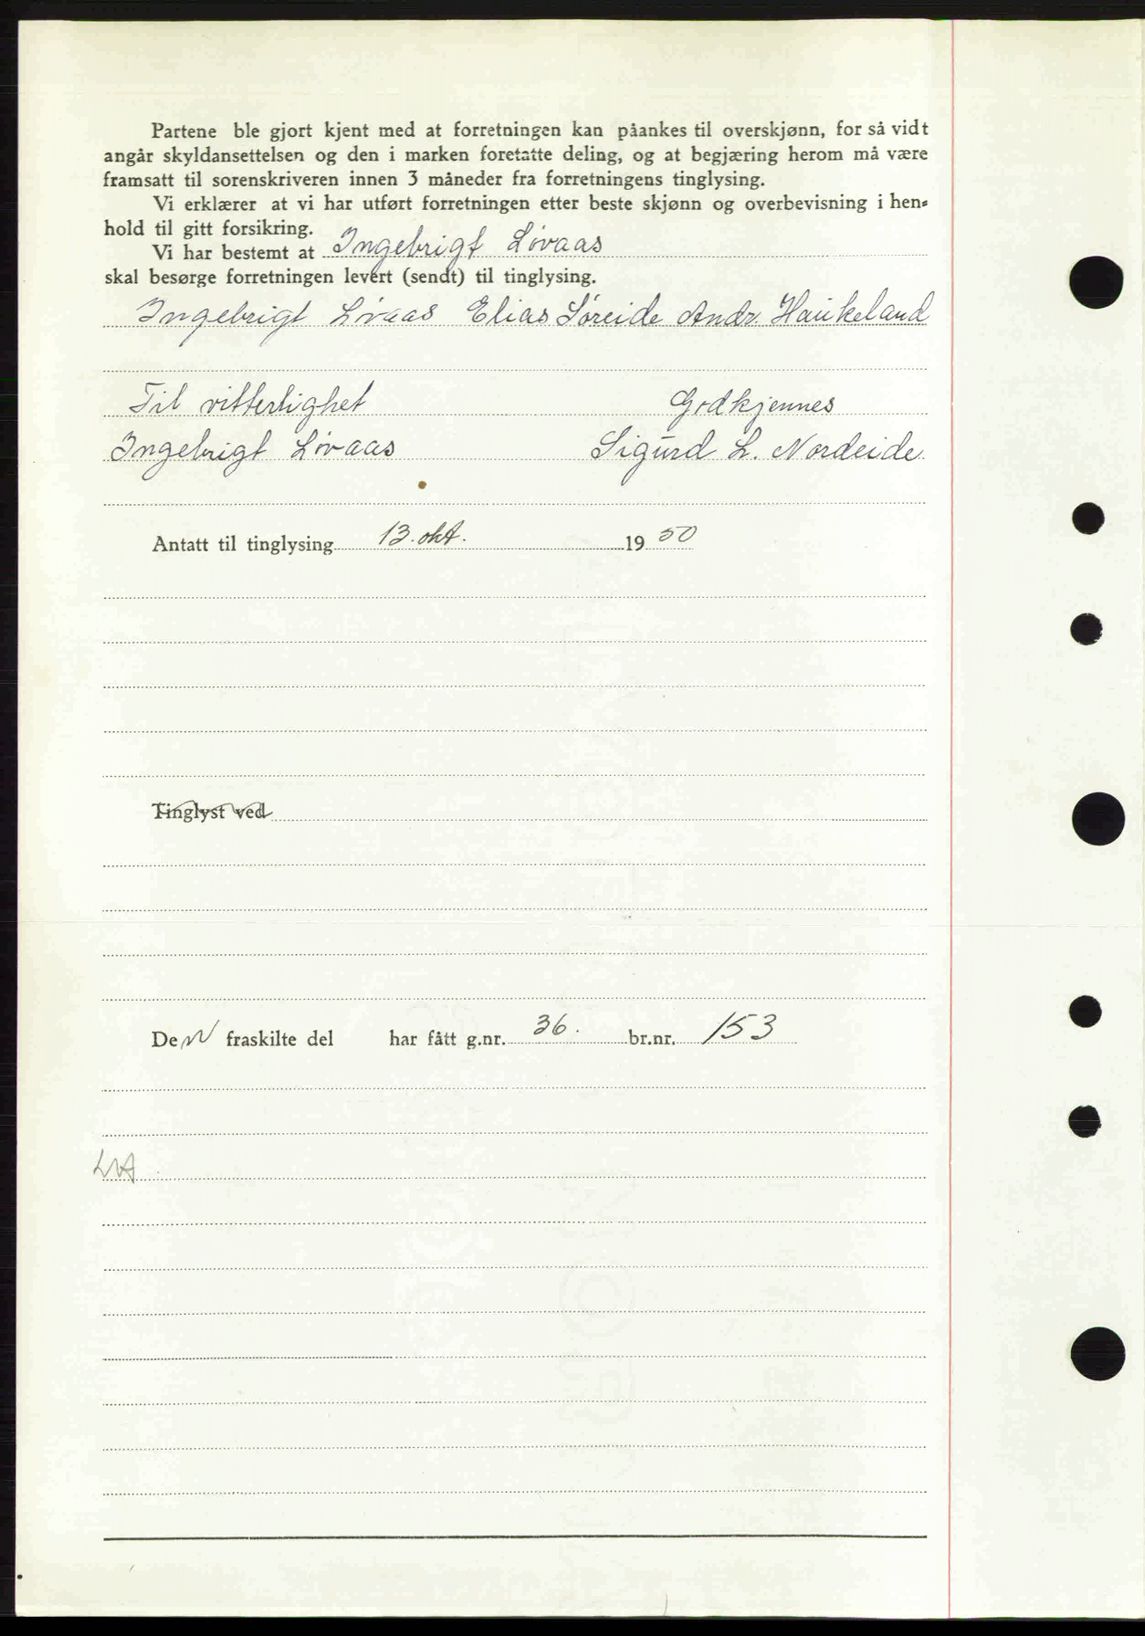 Partene ble gjort kjent med at forretningen kan påankes til overskjønn, for så vidt
angår skyldansettelsen og den i marken foretatte deling, og at begjæring herom må være
framsatt til sorenskriveren innen 3 måneder fra forretningens tinglysing.
Vi erklærer at vi har utført forretningen etter beste skjønn og overbevisning i hen-
hold til gitt forsikring.
Vi har bestemt at Ingebrigt Løvaas
skal besørge forretningen levert (sendt) til tinglysing.
Ingebrigt Løvaas Elias Søreide Andr. Haukeland
Til vitterlighet Godkjennes
Ingebrigt Løvaas Sigurd L. Nordeide
Antatt til tinglysing 13. okt. 19 50
Tinglyst ved
Den fraskilte del har fått g.nr. 36. br.nr. 153